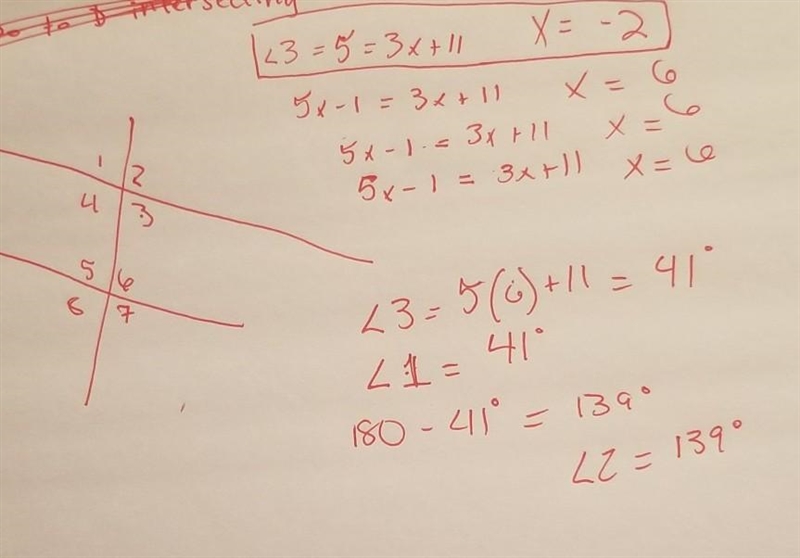 to $ intersecting
∠3 = 5 = 3x+11 X = -2
5x-1 = 3x+11 X = 6
5x-1 = 3x+11 X = 6
5x-1 = 3x+11 X = 6
1 2
4 3
5 6
8 7
∠3 = 5(6)+11 = 41°
∠1 = 41°
180 - 41° = 139°
∠2 = 139°